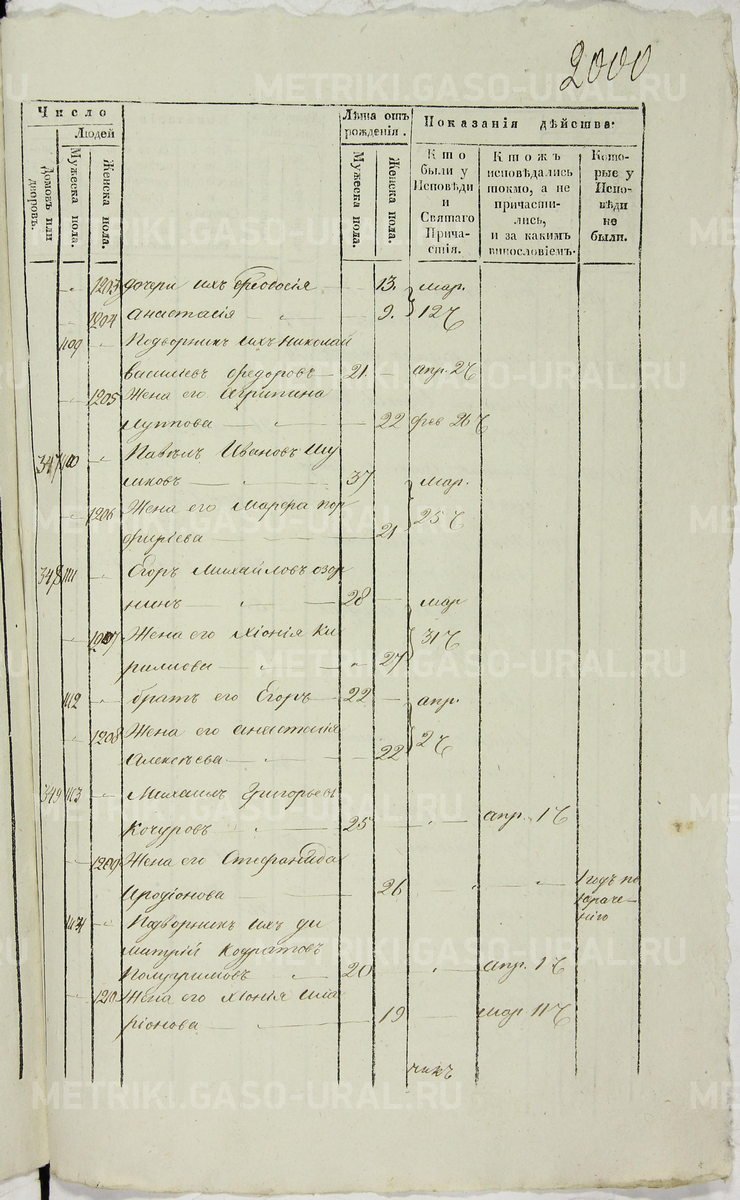 2000
Число
Людей
Домовъ или дворовъ.
Мужеска пола.
Женска пола.
Лѣта отъ рожденія.
Мужеска пола.
Женска пола.
Показанія дѣйства:
Кто были у Исповѣди и Святаго Причастія.
Ктожъ исповѣдались токмо, а не причастились, и за какимъ винословіемъ.
Которые у Исповѣди не были.
1203 дочери ихъ Ѳеодосія 13. мар.
1204 Анастасія 9. 12 ч
1109 Подворникъ ихъ Николай
Васильевъ Ѳедоровъ 21. апр. 2 ч
1205 Жена его Агрипина
Луппова 22 фев 26 ч
347 1110 Павелъ Ивановъ Шу
37 мар.
1206 Жена его Марѳа Пор
фиріева 21 25 ч
348 1111 Егоръ Михайловъ Озор
нинъ 28 мар
1207 Жена его Хіонія Ки
рилова 27 31 ч
1112 братъ его Егоръ 22 апр.
1208 Жена его Анастасія
Алексѣева 22 2 ч
349 1113 Михаилъ Григорьевъ
Кочуровъ 25 апр. 1 ч
1209 Жена его Стефанида
Иродіонова 26 1 годъ по
1114 Подворникъ ихъ Ди
митрій Кодратовъ
20 апр. 1 ч
1210 Жена его Хіонія Ила
ріонова 19 мар 11 ч
METRIKI.GASO-URAL.RU